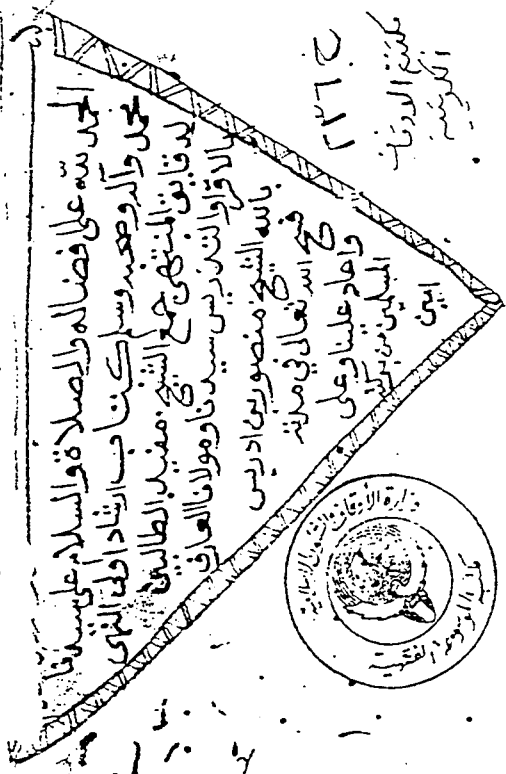 الحمد لله على فضاله والصلاة والسلام على سيدنا
محمد وآله وصحبه وسلم كتاب ارشاد أولى النهى
لدقايق المنتهى جمع الشيخ مفيد الطالبين
بالاقراء والتدريس سيدنا ومولانا العارف
بالله الشيخ منصور بن ادريس
فسح الله تعالى في مدته
واعاد علينا وعلى
المسلمين من بركته
امين
ج ٢٣٦
مكتبة الاوقاف
الكويت
وزارة الأوقاف والشئون الإسلامية
مكتبة الموسوعة الفقهية